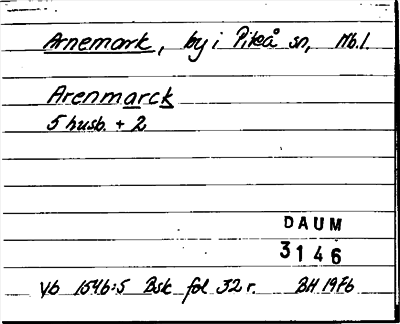 Arnemark, by i Piteå sn, Nb.l.
Arenmarck
5 husb. + 2
DAUM
3146
Vb 1546:5 Bsk fol 32 r. BH 1976